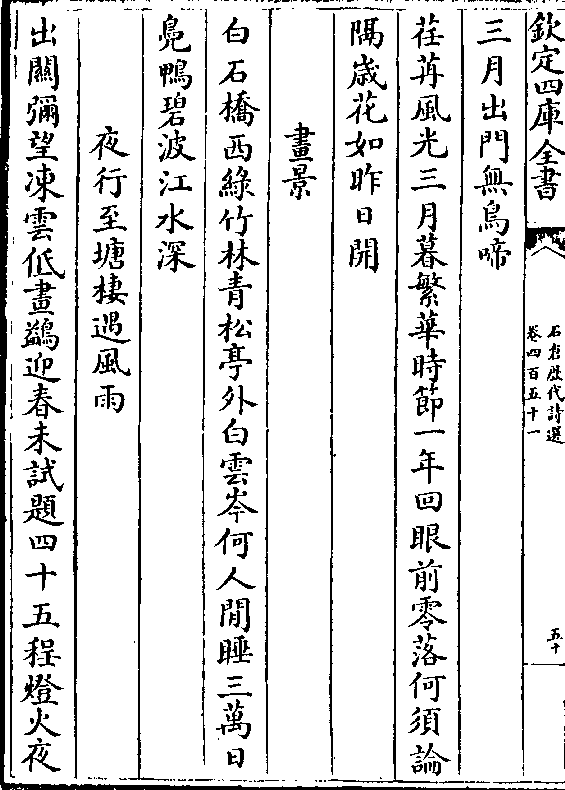 欽定四庫全書
石倉歷代詩選
卷四百五十一
五十
三月出門無鳥啼
荏苒風光三月暮繁華時節一年回眼前零落何須論
隔歳花如昨日開
畫景
白石橋西綠竹林青松亭外白雲岑何人閒睡三萬日
鳧鴨碧波江水深
夜行至塘棲遇風雨
出關彌望凍雲低畫鷁迎春未試題四十五程燈火夜